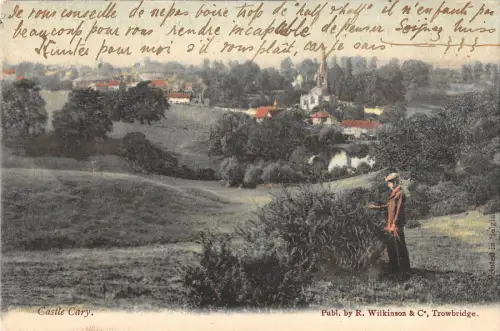 Je vous conseille de ne pas boire trop de "half & half" il n'en faut pas
beaucoup pour vous rendre incapable de penser. Soignez votre
Santé pour moi s'il vous plait car je sais
Castle Cary.
Publ. by R. Wilkinson & Co, Trowbridge.